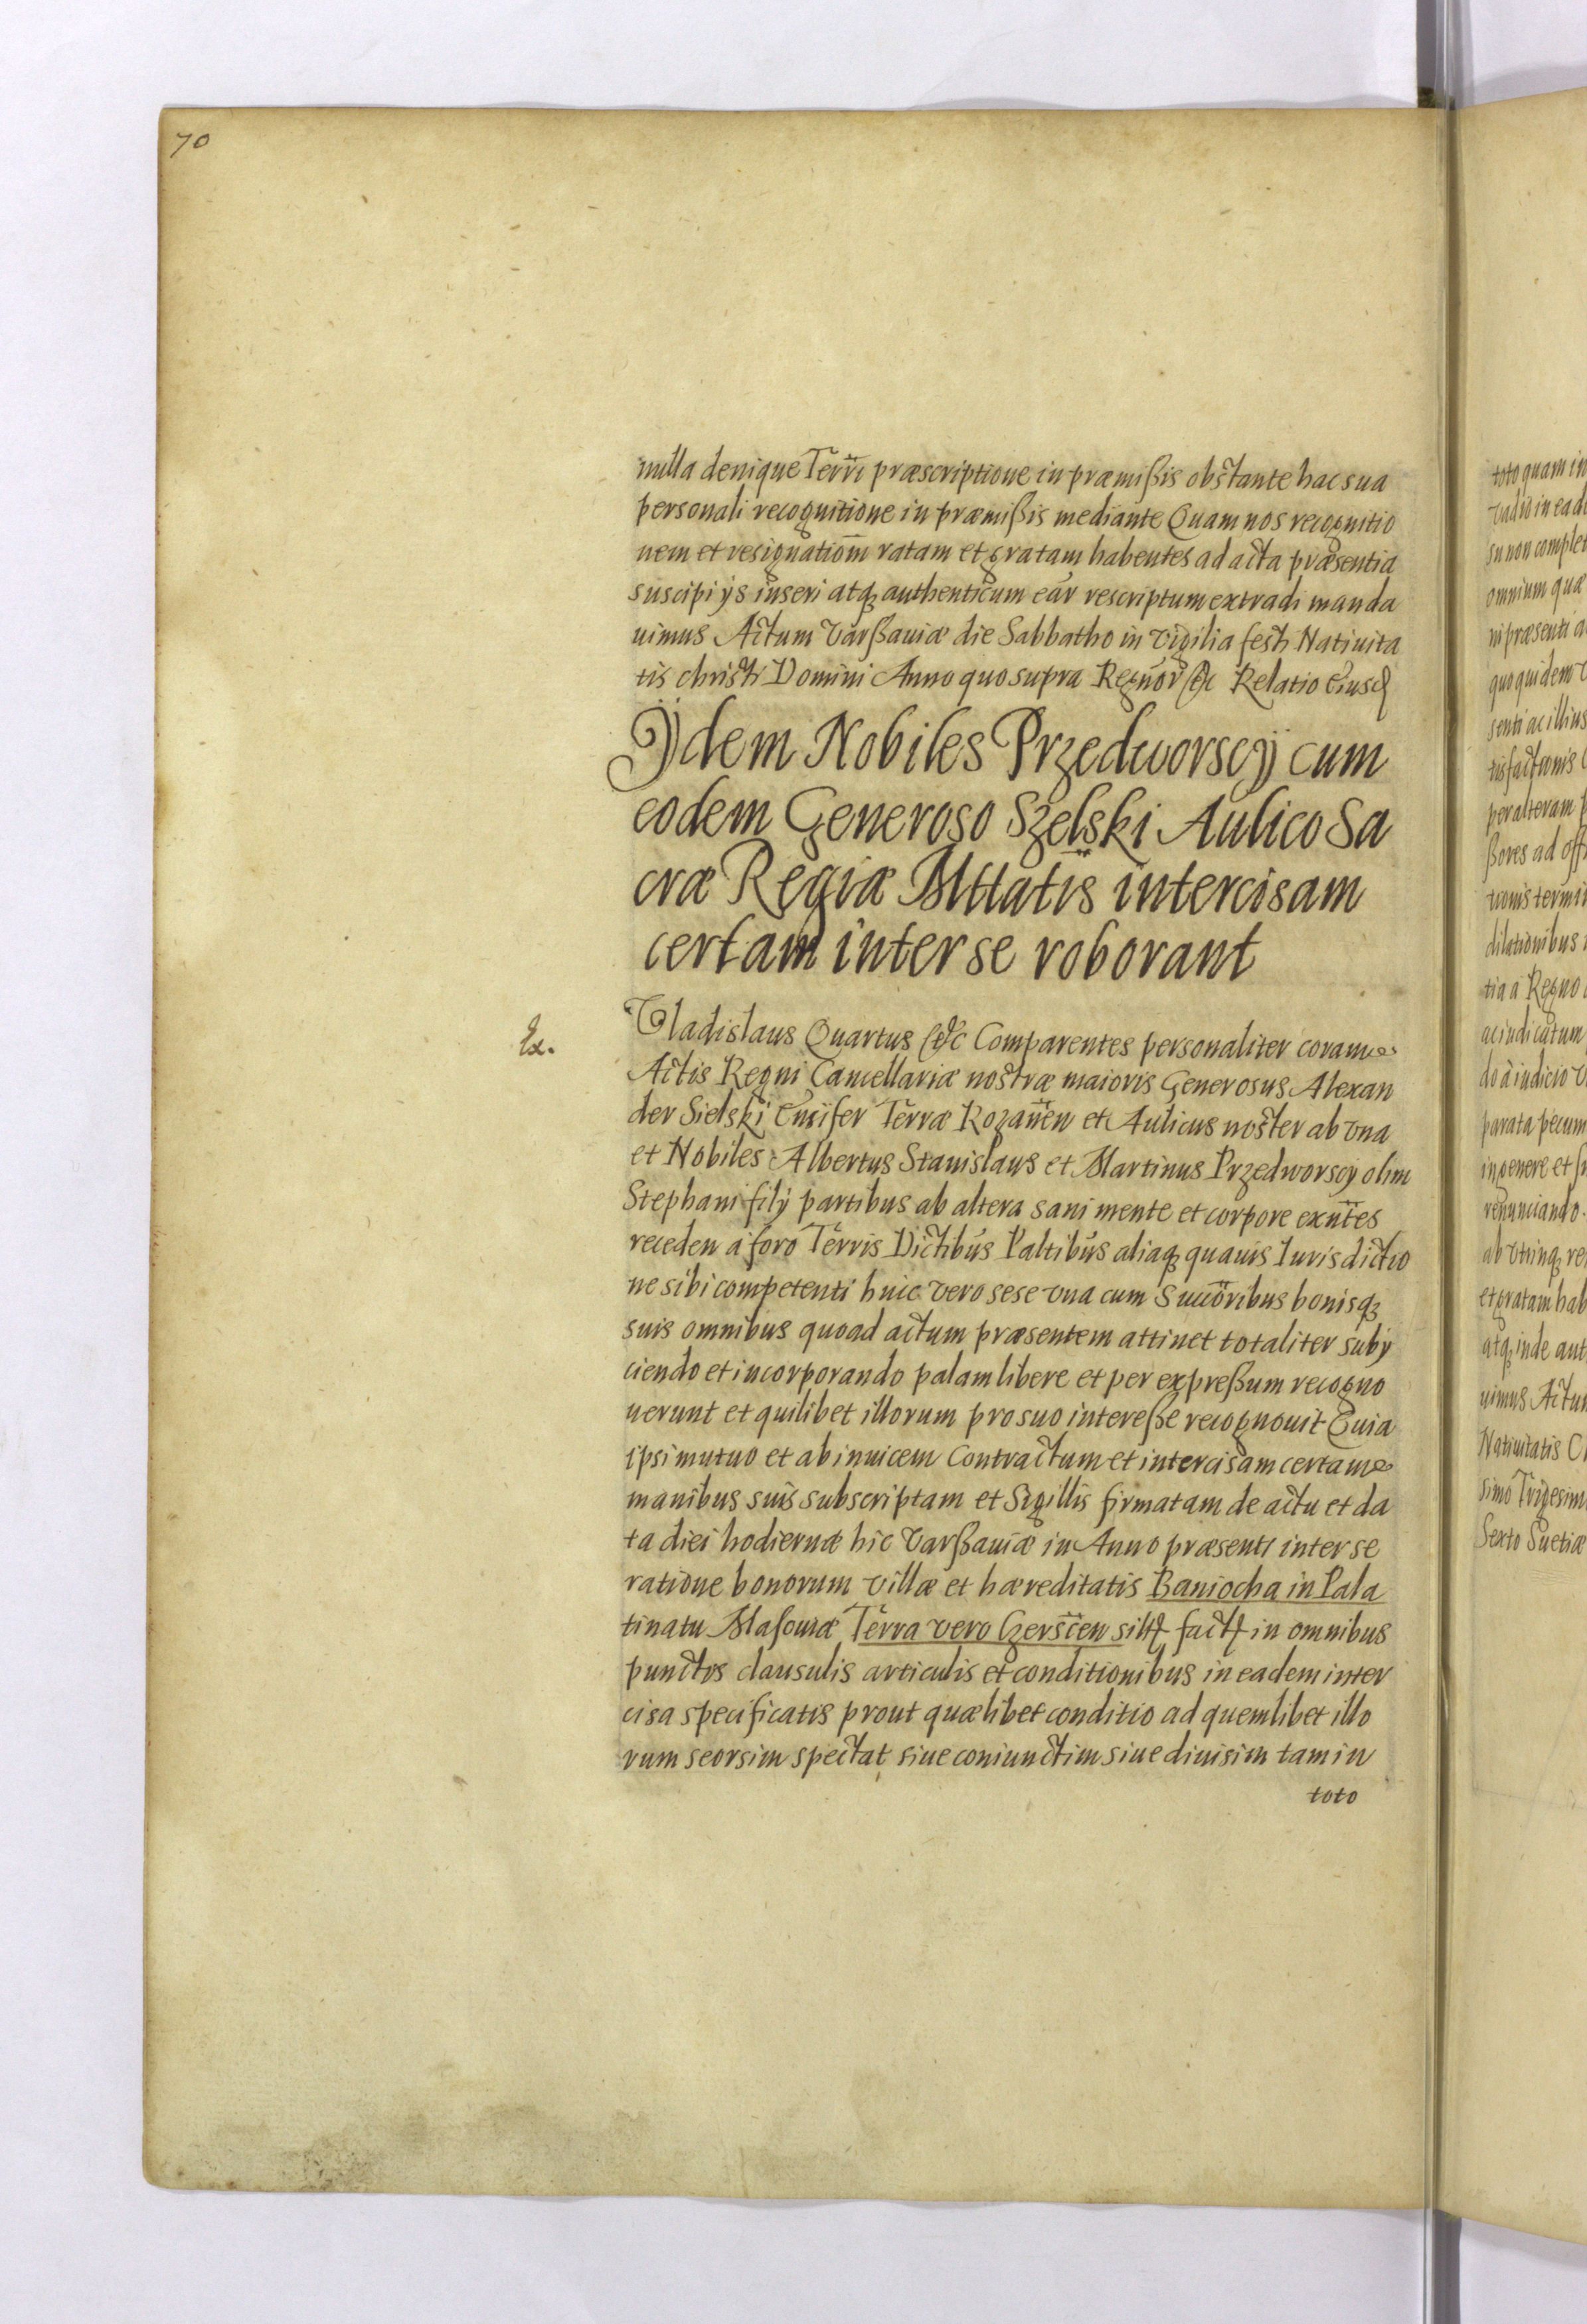 70
nulla denique Terrī præscriptione in præmißis obstante hac sua
personali recognitione in præmißis mediante Quam nos recognitio
nem et resignatiōm ratam et gratam habentes ad acta præsentia
suscipi ijs inseri atq; authenticum ear rescriptum extradi manda
uimus Actum Varßauiæ die Sabbatho in Vigilia festi Natiuita
tis christi Domini Anno quo supra Regnor &c Relatio eiusd
Ijdem Nobiles Przedworscÿ cum
eodem Generoso Szelski Aulico Sa
cræ Regiæ Mttatis intercisam
certam inter se roborant
Ex.
Vladislaus Quartus &c Comparentes personaliter coram
Actis Regni Cancellariæ nostræ maioris Generosus Alexan
der Sielski Ensifer Terræ Rozanēn et Aulicus noster ab vna
et Nobiles Albertus Stanislaus et Martinus Przedworscy olim
Stephani filÿ partibus ab altera sani mente et corpore exn̄tes
receden a foro Terris Dictibus Paltibus aliaq; quauis Iurisdictio
ne sibi competenti huic vero sese vna cum Succōribus bonisq;
suis omnibus quoad actum præsentem attinet totaliter subÿ
ciendo et incorporando palam libere et per expreßum recogno
uerunt et quilibet illorum pro suo intereße recognouit Quia
ipsi mutuo et ab inuicem Contractum et intercisam certam
manibus suis subscriptam et Sigillis firmatam de actu et da
ta diei hodiernæ hic Varßauiæ in Anno præsenti inter se
ratione bonorum villæ et hæreditatis Baniocha in Pala
tinatu Masouiæ Terra vero Czersc̄en in omnibus
punctis clausulis articulis et conditionibus in eadem inter
cisa specificatis prout quælibet conditio ad quemlibet illo
rum seorsim spectat siue coniunctim siue diuisim tam in
toto
toto quam in
su non complet
omnium quæ
ni præsenti a
quo quidem
senti ac illius
per alteram p
ßores ad off
tionis termi
dilationibus
tia a Regno
ac iudicatum
do a iudicio
parata pecun
in genere et
renunciando
ab vtrinq; re
et gratam hab
atq; inde aut
uimus Actu
Natiuitatis C
simo Trigesim
Sexto Suetiæ